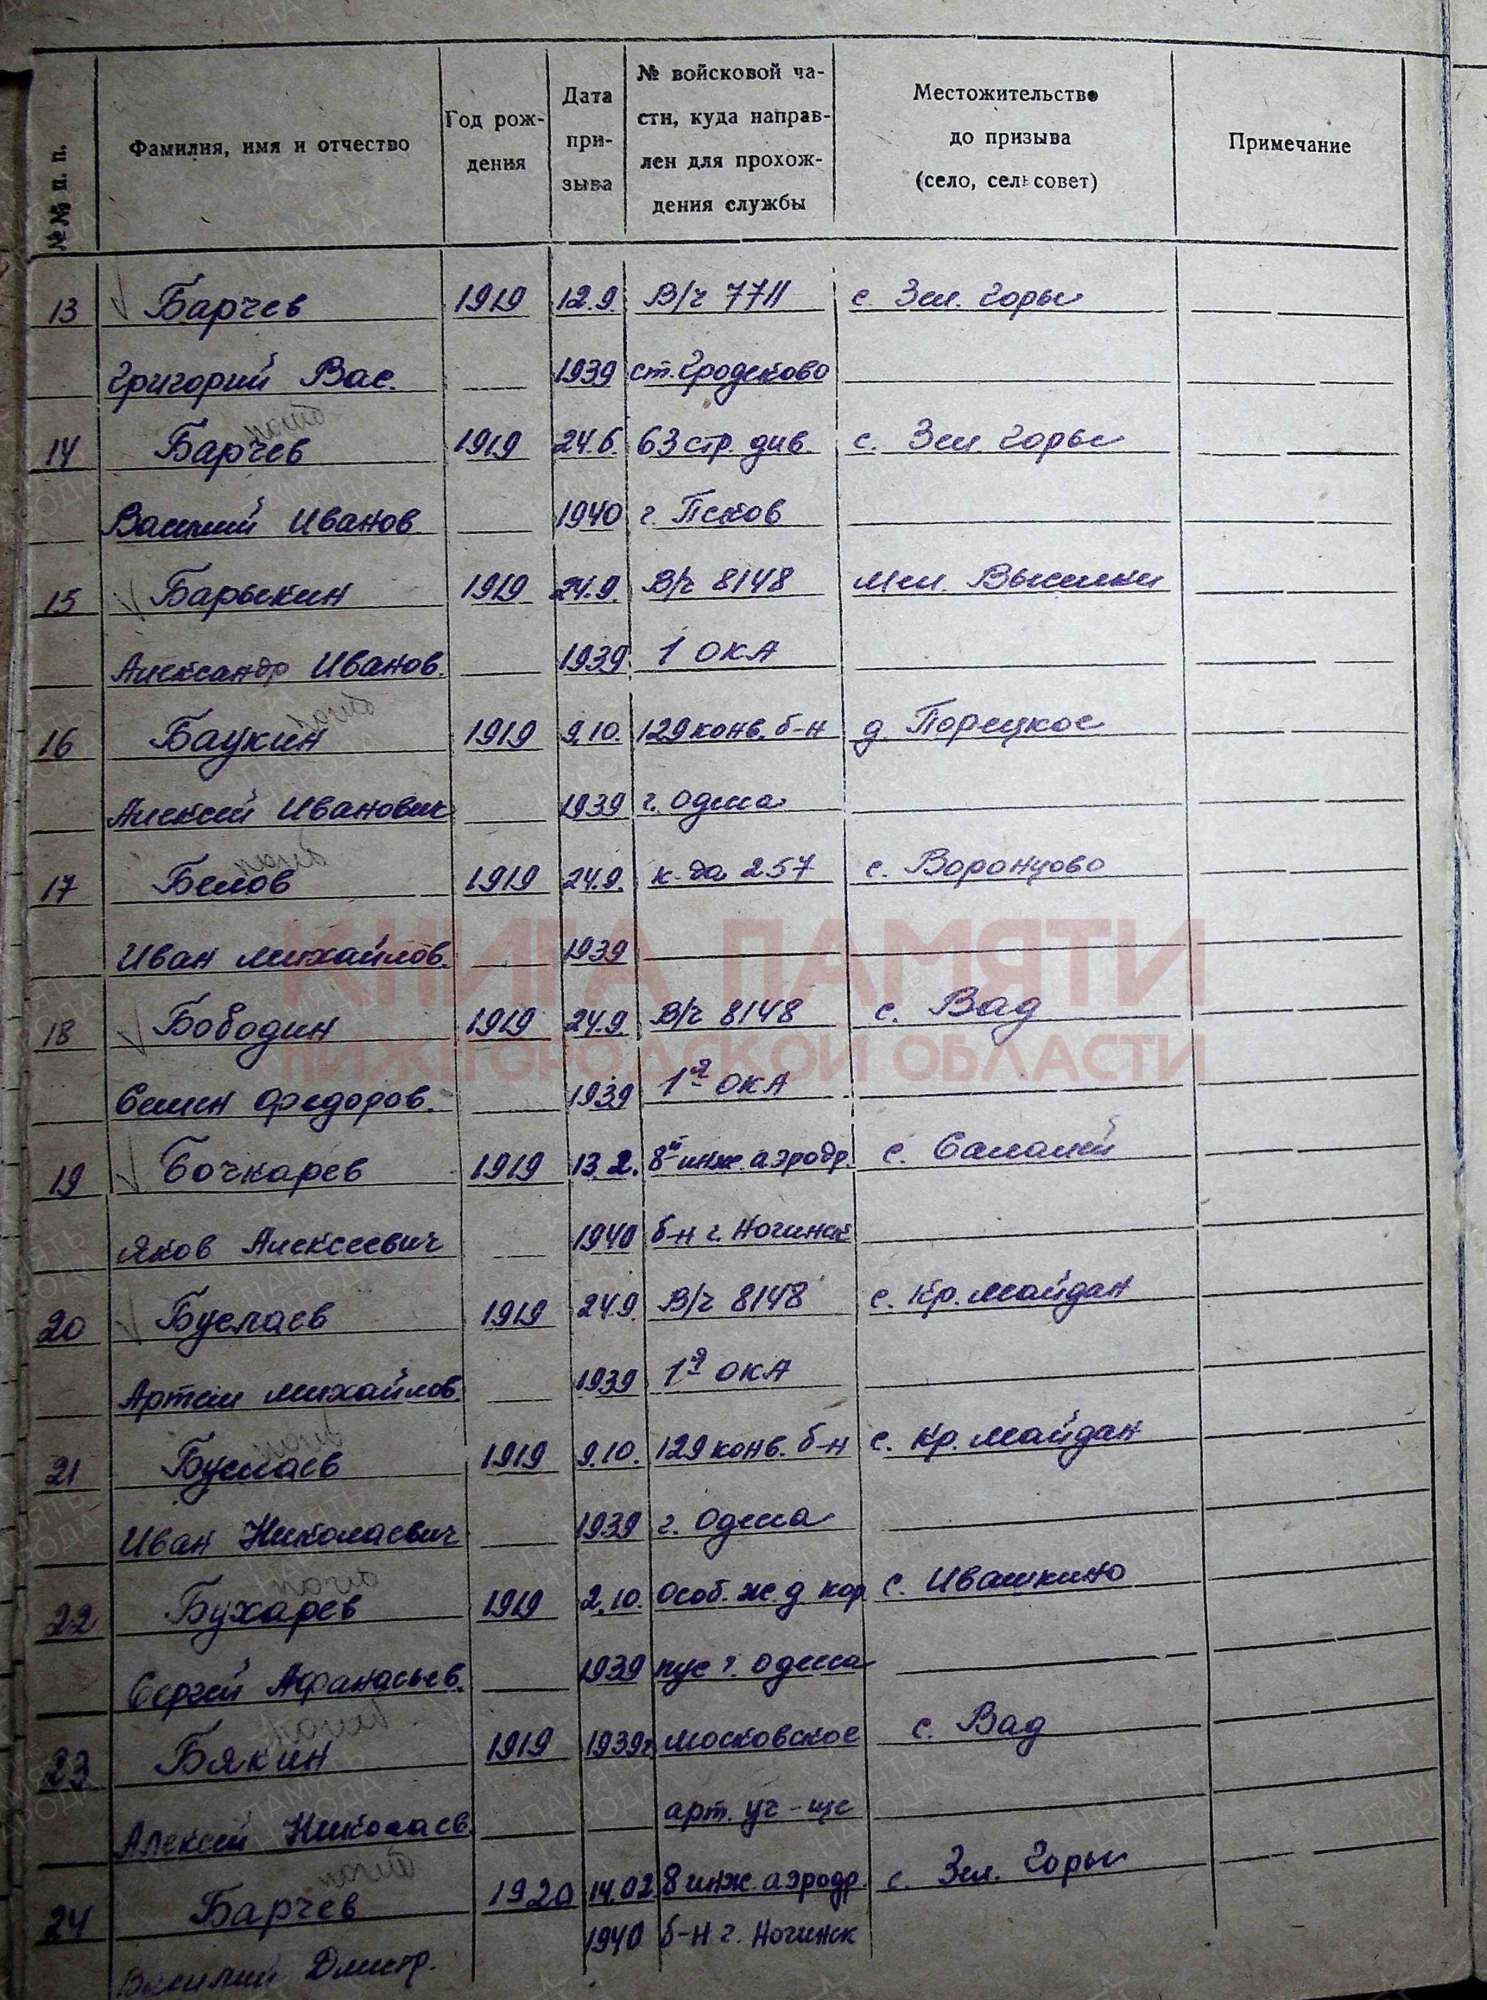 №№ п. п.
Фамилия, имя и отчество
Год рож-
дения
Дата
при-
зыва
№ войсковой ча-
сти, куда направ-
лен для прохож-
дения службы
Местожительство
до призыва
(село, сельсовет)
Примечание
13 Барчев 1919 12.9. В/ч 7711 с. Зел. Горы
Григорий Вас. 1939 ст. Гродеково
погиб
14 Барчев 1919 24.6. 63 стр. див. с. Зел. Горы
Василий Иванов 1940 г. Псков
15 Барыкин 1919 24.9. В/ч 8148 Мел. Выселки
Александр Иванов. 1939 1 ОКА
погиб
16 Баукин 1919 9.10. 129 конв. б-н д. Порецкое
Алексей Иванович 1939 г. Одесса
погиб
17 Белов 1919 24.9. к-да 257 с. Воронцово
Иван Михайлов. 1939
КНИГА ПАМЯТИ
18 Бободин 1919 24.9. В/ч 8148 с. Вад
НИЖЕГОРОДСКОЙ ОБЛАСТИ
Семен Федоров. 1939 1я ОКА
19 Бочкарев 1919 13.2. 8й инж. аэродр. с. Салалей
Яков Алексеевич 1940 б-н г. Ногинск
20 Буслаев 1919 24.9. В/ч 8148 с. Кр. Майдан
Артем Михайлов. 1939 1я ОКА
погиб
21 Буслаев 1919 9.10. 129 конв. б-н с. Кр. Майдан
Иван Николаевич 1939 г. Одесса
погиб
22 Бухарев 1919 2.10. Особ. ж.д кор с. Ивашкино
Сергей Афанасьев. 1939 пус г. Одесса
погиб
23 Бякин 1919 1939г. Московское с. Вад
Алексей Николаев. арт. уч-ще
погиб
24 Барчев 1920 14.02 8 инж. аэродр. с. Зел. Горы
Василий Дмитр. 1940 б-н г. Ногинск